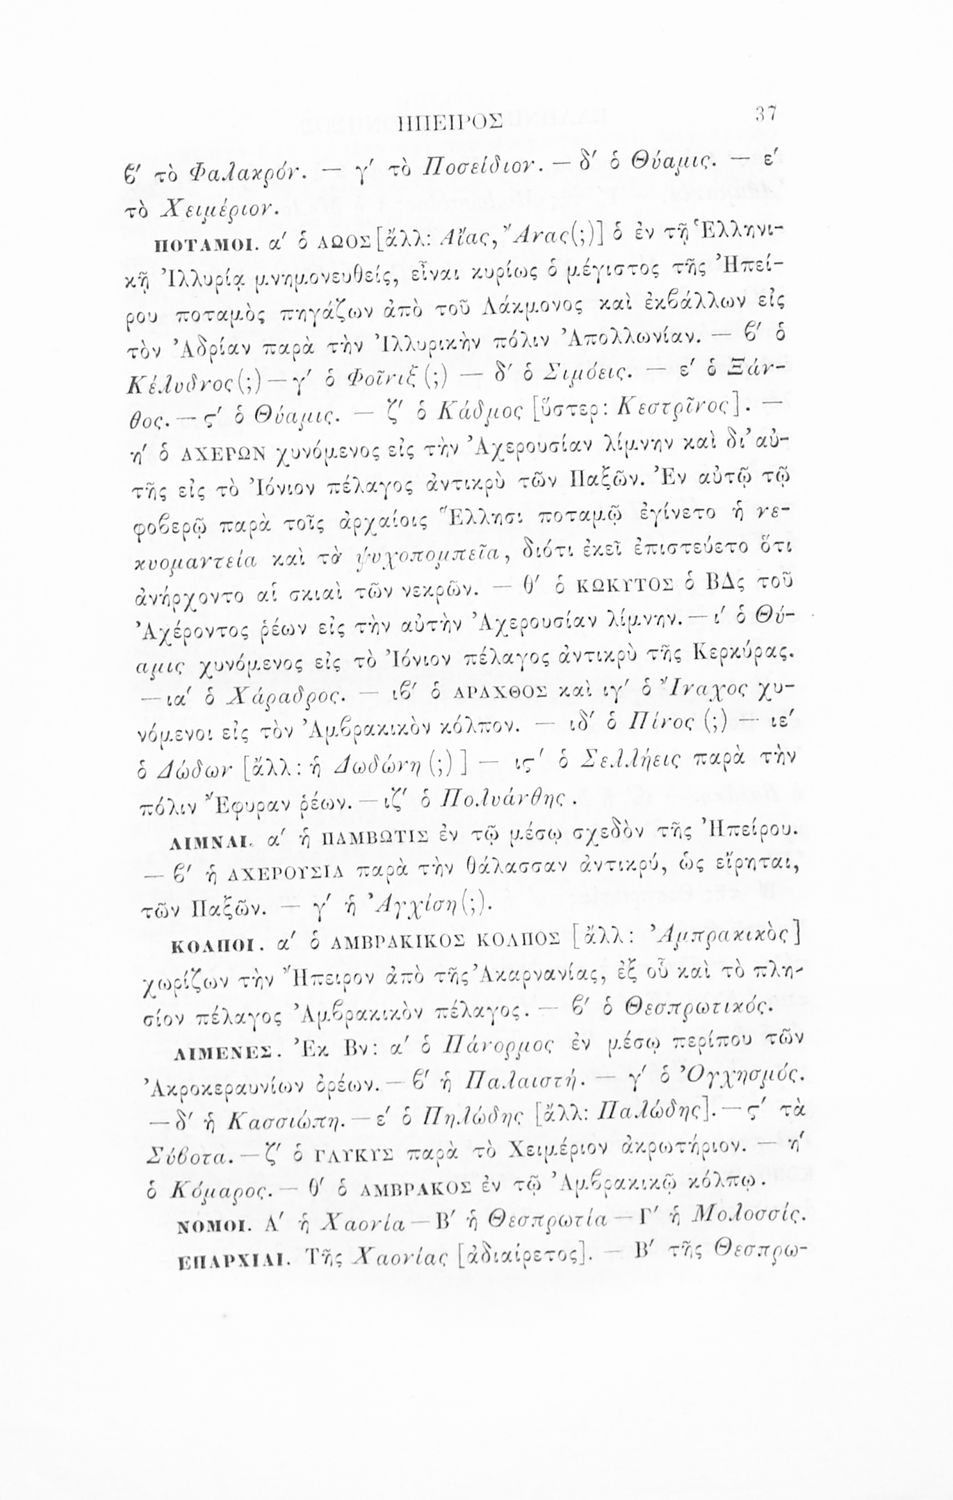 ΗΠΕΙΡΟΣ 37
ϐ′ τὸ Φαλακρόν. — γ′ τὸ Ποσείδιον. — δ′ ὁ Θύαμις. — ε′
τὸ Χειμέριον.
ΠΟΤΑΜΟΙ. α′ ὁ ΑΩΟΣ [ἄλλ: Αἴας, Ἄνας(;)] ὁ ἐν τῇ Ἑλληνι-
κῇ Ἰλλυρίᾳ μνημονευθείς, εἶναι κυρίως ὁ μέγιστος τῆς Ἠπεί-
ρου ποταμὸς πηγάζων ἀπὸ τοῦ Λάκμονος καὶ ἐκϐάλλων εἰς
τὸν Ἀδρίαν παρὰ τὴν Ἰλλυρικὴν πόλιν Ἀπολλωνίαν. — ϐ′ ὁ
Κέλυδνος(;) — γ′ ὁ Φοῖνιξ (;) — δ′ ὁ Σιμόεις. — ε′ ὁ Ξάν-
θος. — ϛ′ ὁ Θύαμις. — ζ′ ὁ Κάδμος [ὕστερ: Κεστρῖνος]. —
η′ ὁ ΑΧΕΡΩΝ χυνόμενος εἰς τὴν Ἀχερουσίαν λίμνην καὶ δι’ αὐ-
τῆς εἰς τὸ Ἰόνιον πέλαγος ἀντικρὺ τῶν Παξῶν. Ἐν αὐτῷ τῷ
φοϐερῷ παρὰ τοῖς ἀρχαίοις Ἕλλησι ποταμῷ ἐγίνετο ἡ νε-
κυομαντεία καὶ τὰ ψυχοπομπεῖα, διότι ἐκεῖ ἐπιστεύετο ὅτι
ἀνήρχοντο αἱ σκιαὶ τῶν νεκρῶν. — θ′ ὁ ΚΩΚΥΤΟΣ ὁ ΒΔς τοῦ
Ἀχέροντος ῥέων εἰς τὴν αὐτὴν Ἀχερουσίαν λίμνην. — ι′ ὁ Θύ-
αμις χυνόμενος εἰς τὸ Ἰόνιον πέλαγος ἀντικρὺ τῆς Κερκύρας.
— ια′ ὁ Χάραδρος. — ιϐ′ ὁ ΑΡΑΧΘΟΣ καὶ ιγ′ ὁ Ἴναχος χυ-
νόμενοι εἰς τὸν Ἀμϐρακικὸν κόλπον. — ιδ′ ὁ Πίνος (;) — ιε′
ὁ Δώδων [ἄλλ: ἡ Δωδώνη (;) ] — ιϛ′ ὁ Σελλήεις παρὰ τὴν
πόλιν Ἔφυραν ῥέων. — ιζ′ ὁ Πολυάνθης.
ΛΙΜΝΑΙ. α′ ἡ ΠΑΜΒΩΤΙΣ ἐν τῷ μέσῳ σχεδὸν τῆς Ἠπείρου.
— ϐ′ ἡ ΑΧΕΡΟΥΣΙΑ παρὰ τὴν θάλασσαν ἀντικρύ, ὡς εἴρηται,
τῶν Παξῶν. — γ′ ἡ Ἀγχίση(;).
ΚΟΛΠΟΙ. α′ ὁ ΑΜΒΡΑΚΙΚΟΣ ΚΟΛΠΟΣ [ἄλλ: Ἀμπρακικὸς]
χωρίζων τὴν Ἤπειρον ἀπὸ τῆς Ἀκαρνανίας, ἐξ οὗ καὶ τὸ πλη-
σίον πέλαγος Ἀμϐρακικὸν πέλαγος. — ϐ′ ὁ Θεσπρωτικός.
ΛΙΜΕΝΕΣ. Ἐκ Βν: α′ ὁ Πάνορμος ἐν μέσῳ περίπου τῶν
Ἀκροκεραυνίων ὀρέων. — ϐ′ ἡ Παλαιστή. — γ′ ὁ Ὀγχησμός.
— δ′ ἡ Κασσιώπη. — ε′ ὁ Πηλώδης [ἄλλ: Παλώδης]. — ϛ′ τὰ
Σύϐοτα. — ζ′ ὁ ΓΛΥΚΥΣ παρὰ τὸ Χειμέριον ἀκρωτήριον. — η′
ὁ Κόμαρος. — θ′ ὁ ΑΜΒΡΑΚΟΣ ἐν τῷ Ἀμϐρακικῷ κόλπῳ.
ΝΟΜΟΙ. Α′ ἡ Χαονία — Β′ ἡ Θεσπρωτία — Γ′ ἡ Μολοσσίς.
ΕΠΑΡΧΙΑΙ. Τῆς Χαονίας [ἀδιαίρετος]. — Β′ τῆς Θεσπρω-